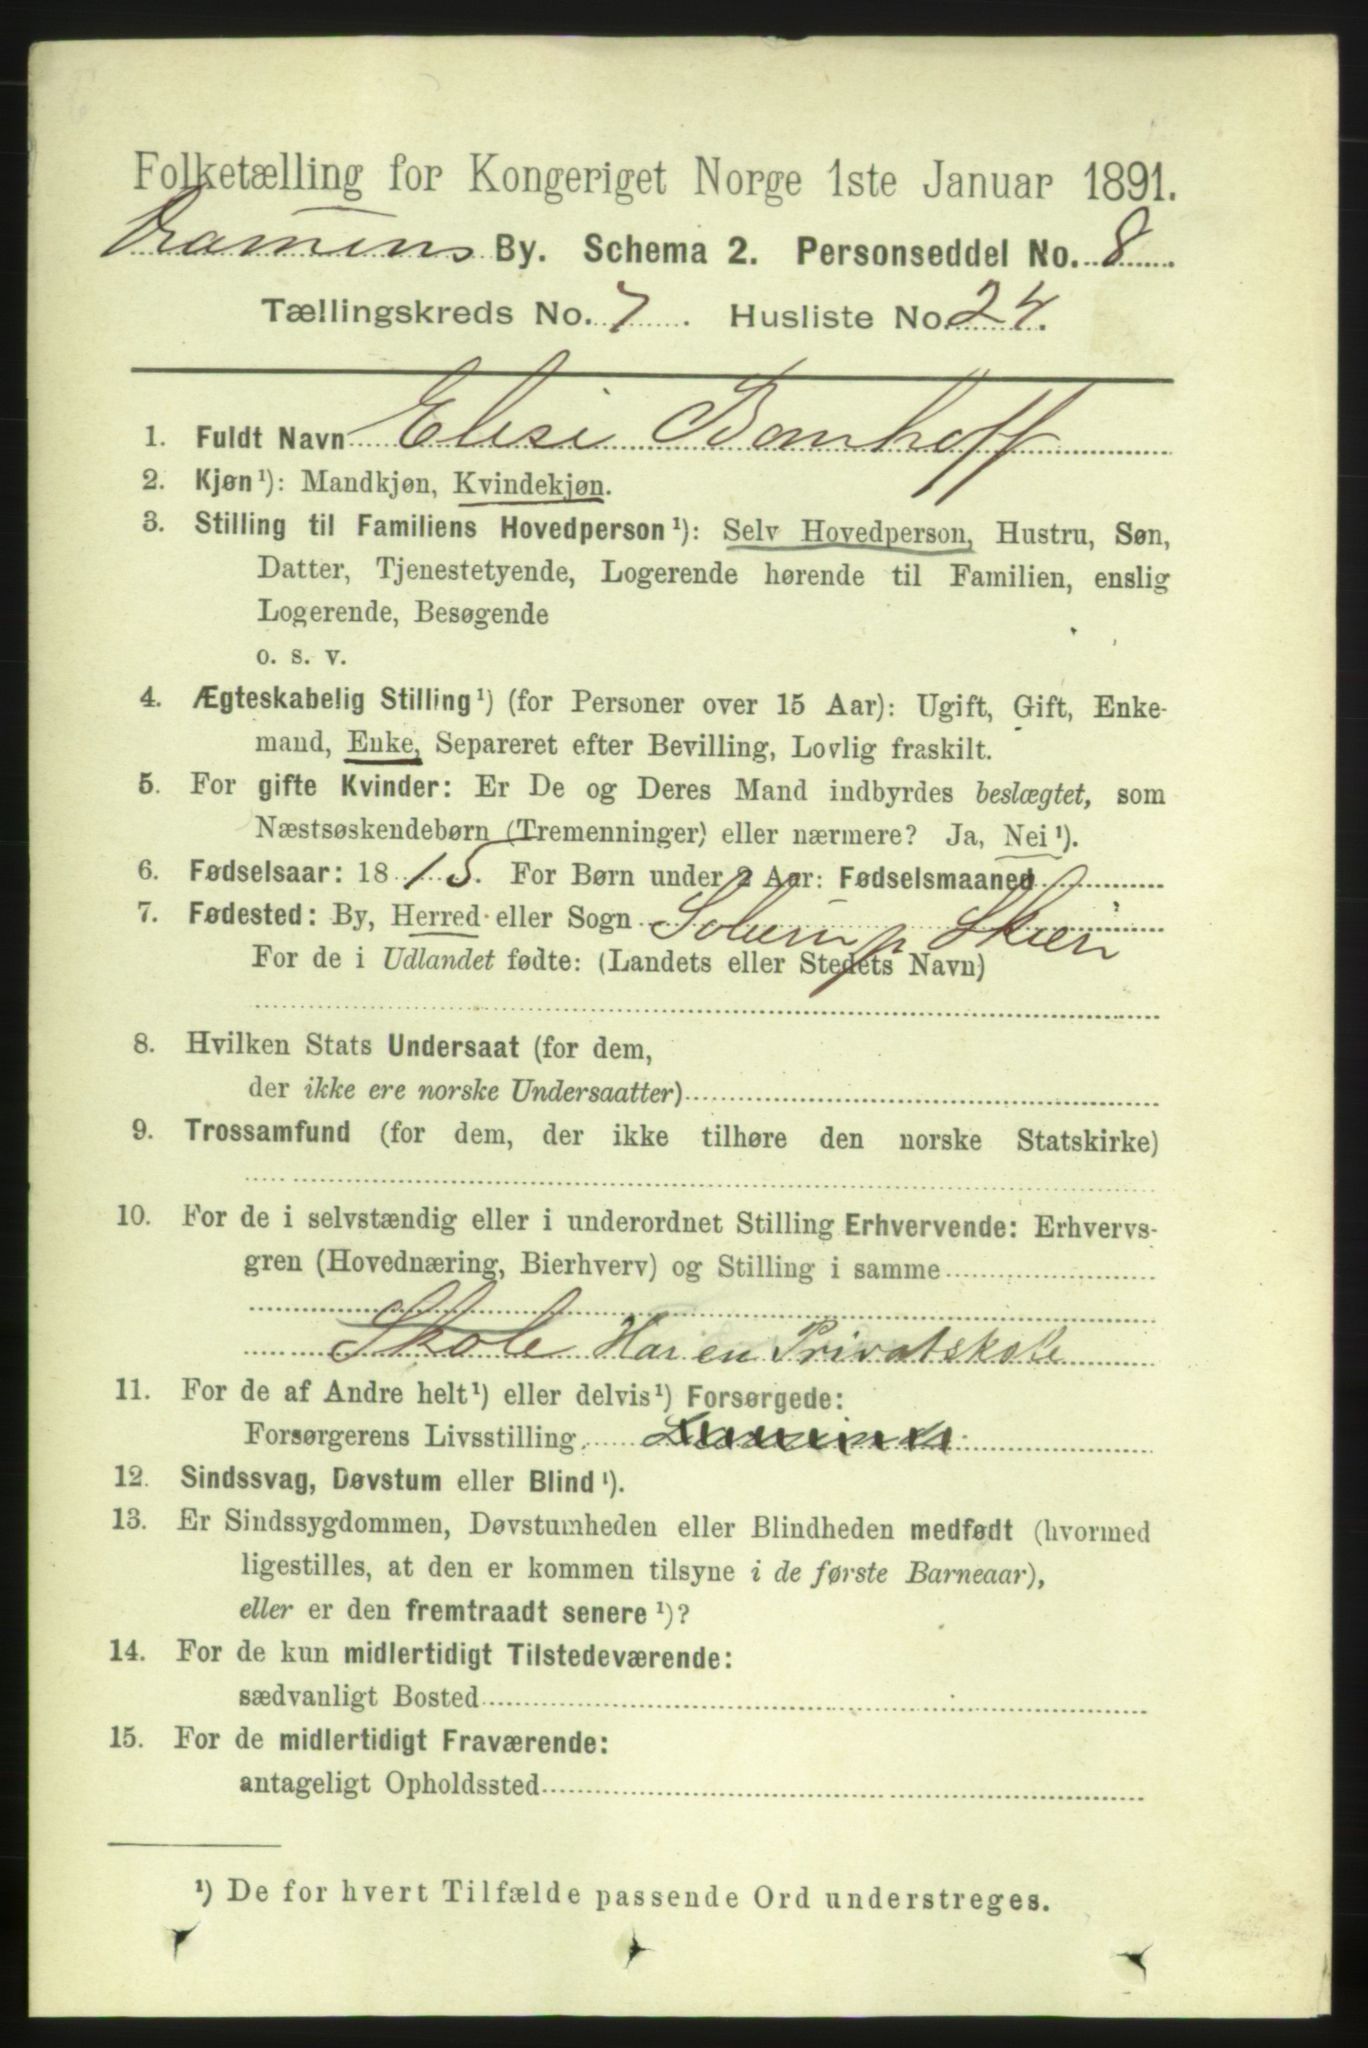 Folketælling for Kongeriget Norge 1ste Januar 1891.
Dramens By. Schema 2. Personseddel No. 8
Tællingskreds No. 7. Husliste No. 24.
1. Fuldt Navn Elisi Bomhoff
2. Kjøn¹): Mandkjøn, Kvindekjøn.
3. Stilling til Familiens Hovedperson¹): Selv Hovedperson, Hustru, Søn,
Datter, Tjenestetyende, Logerende hørende til Familien, enslig
Logerende, Besøgende
o. s. v.
4. Ægteskabelig Stilling¹) (for Personer over 15 Aar): Ugift, Gift, Enke-
mand, Enke, Separeret efter Bevilling, Lovlig fraskilt.
5. For gifte Kvinder: Er De og Deres Mand indbyrdes beslægtet, som
Næstsøskendebørn (Tremenninger) eller nærmere? Ja, Nei¹).
6. Fødselsaar: 1815. For Børn under 2 Aar: Fødselsmaaned
7. Fødested: By, Herred eller Sogn Solum p Skien
For de i Udlandet fødte: (Landets eller Stedets Navn)
8. Hvilken Stats Undersaat (for dem,
der ikke ere norske Undersaatter)
9. Trossamfund (for dem, der ikke tilhøre den norske Statskirke)
10. For de i selvstændig eller i underordnet Stilling Erhvervende: Erhvervs-
gren (Hovednæring, Bierhverv) og Stilling i samme
Skole Har en Privatskole
11. For de af Andre helt¹) eller delvis¹) Forsørgede:
Forsørgerens Livsstilling
12. Sindssvag, Døvstum eller Blind¹).
13. Er Sindssygdommen, Døvstumheden eller Blindheden medfødt (hvormed
ligestilles, at den er kommen tilsyne i de første Barneaar),
eller er den fremtraadt senere¹)?
14. For de kun midlertidigt Tilstedeværende:
sædvanligt Bosted
15. For de midlertidigt Fraværende:
antageligt Opholdssted
¹) De for hvert Tilfælde passende Ord understreges.